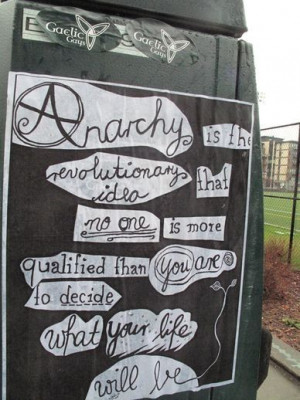 Gaelic
Gaelic
Anarchy is the
revolutionary
idea that
no one is more
qualified than you are
to decide
what your life
will be